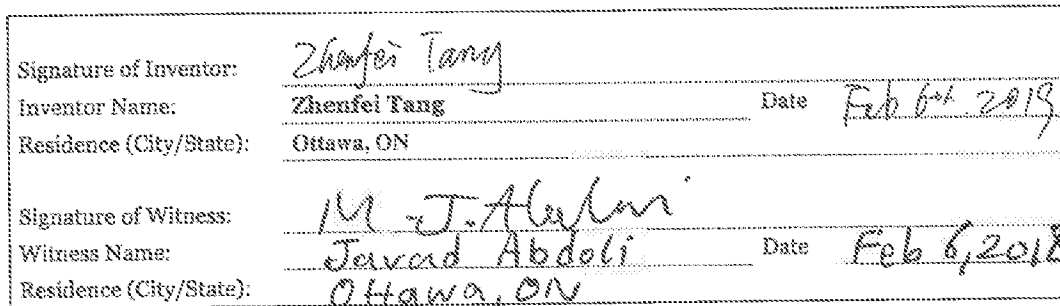 Signature of Inventor: Zhenfei Tang
Inventor Name: Zhenfei Tang Date Feb 6th 2019
Residence (City/State): Ottawa, ON
Signature of Witness: M. J. Abdoli
Witness Name: Javad Abdoli Date Feb 6, 2018
Residence (City/State): Ottawa, ON